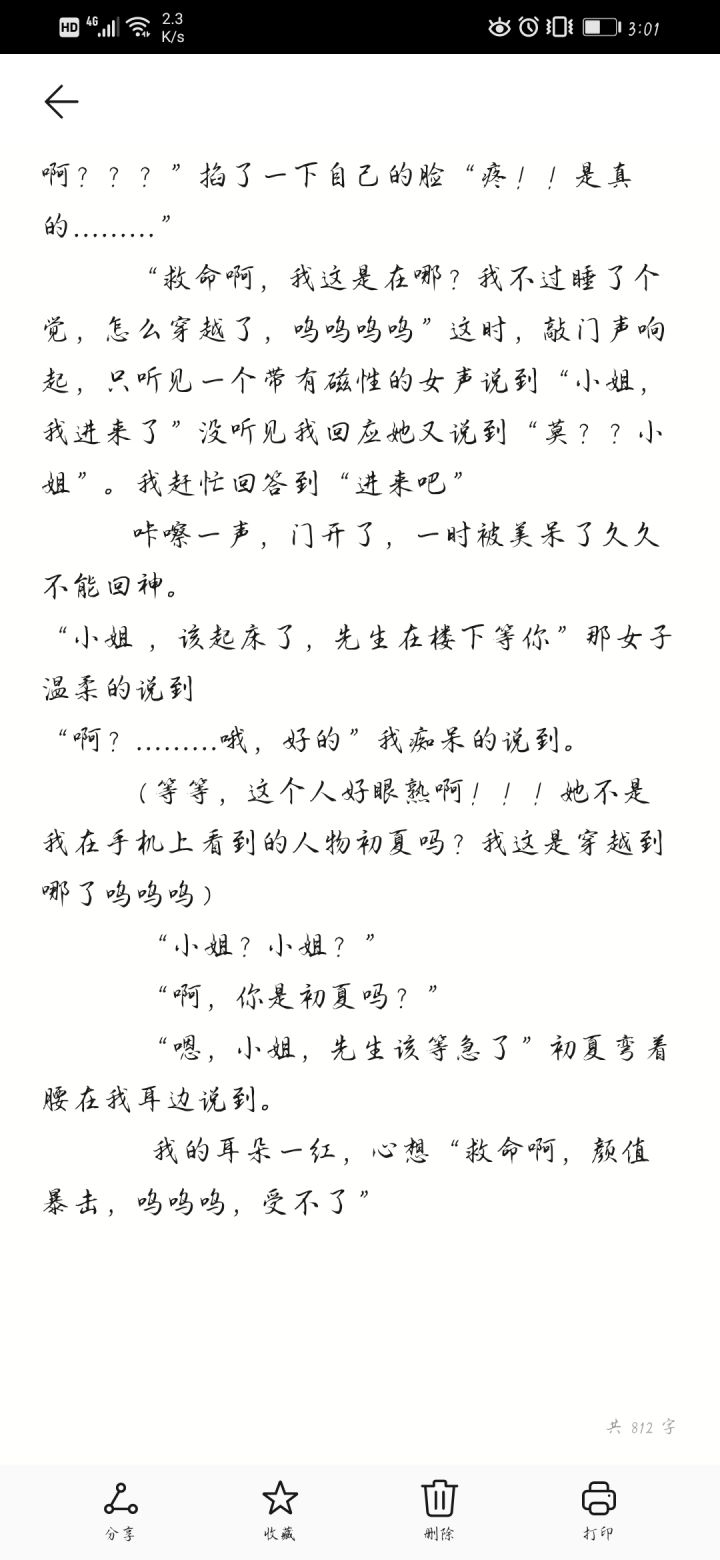 HD 4G 2.3 K/s 3:01
啊？？？”掐了一下自己的脸“疼！！是真
的………”
“救命啊，我这是在哪？我不过睡了个
觉，怎么穿越了，呜呜呜呜”这时，敲门声响
起，只听见一个带有磁性的女声说到“小姐，
我进来了”没听见我回应她又说到“莫？？小
姐”。我赶忙回答到“进来吧”
咔嚓一声，门开了，一时被美呆了久久
不能回神。
“小姐 ，该起床了，先生在楼下等你”那女子
温柔的说到
“啊？………哦，好的”我痴呆的说到。
（等等，这个人好眼熟啊！！！她不是
我在手机上看到的人物初夏吗？我这是穿越到
哪了呜呜呜）
“小姐？小姐？”
“啊，你是初夏吗？”
“嗯，小姐，先生该等急了”初夏弯着
腰在我耳边说到。
我的耳朵一红，心想“救命啊，颜值
暴击，呜呜呜，受不了”
共 812 字
分享 收藏 删除 打印